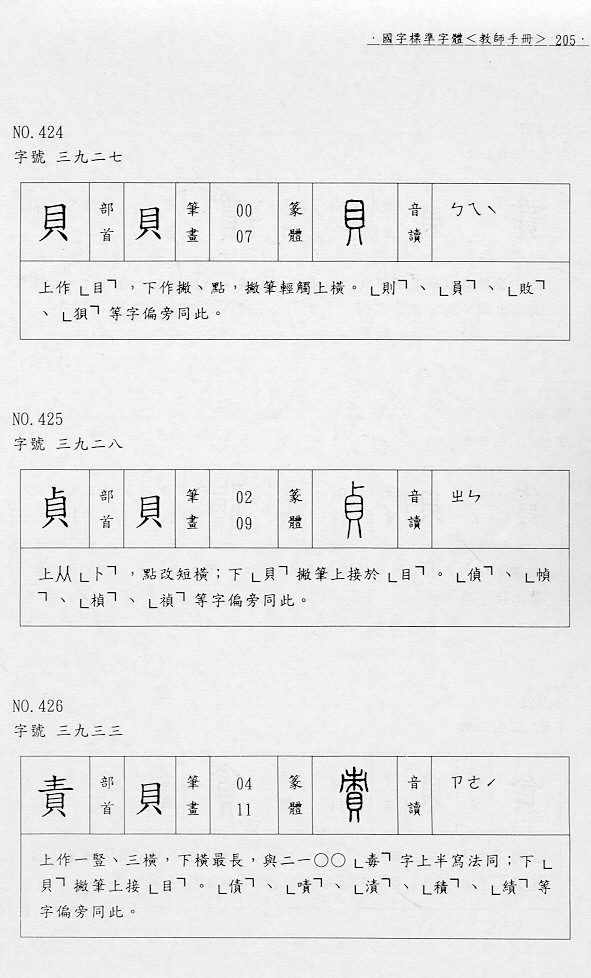 ·國字標準字體<教師手冊> 205·
NO.424
字號 三九二七
貝 部首 貝 筆畫 00 07 篆體 貝 音讀 ㄅㄟˋ
上作「目」，下作撇、點，撇筆輕觸上橫。「則」、「員」、「敗」
、「狽」等字偏旁同此。
NO.425
字號 三九二八
貞 部首 貝 筆畫 02 09 篆體 貞 音讀 ㄓㄣ
上从「卜」，點改短橫；下「貝」撇筆上接於「目」。「偵」、「幀
」、「楨」、「禎」等字偏旁同此。
NO.426
字號 三九三三
責 部首 貝 筆畫 04 11 篆體 責 音讀 ㄗㄜˊ
上作一豎、三橫，下橫最長，與二一〇〇「毒」字上半寫法同；下「
貝」撇筆上接「目」。「債」、「嘖」、「漬」、「積」、「績」等
字偏旁同此。